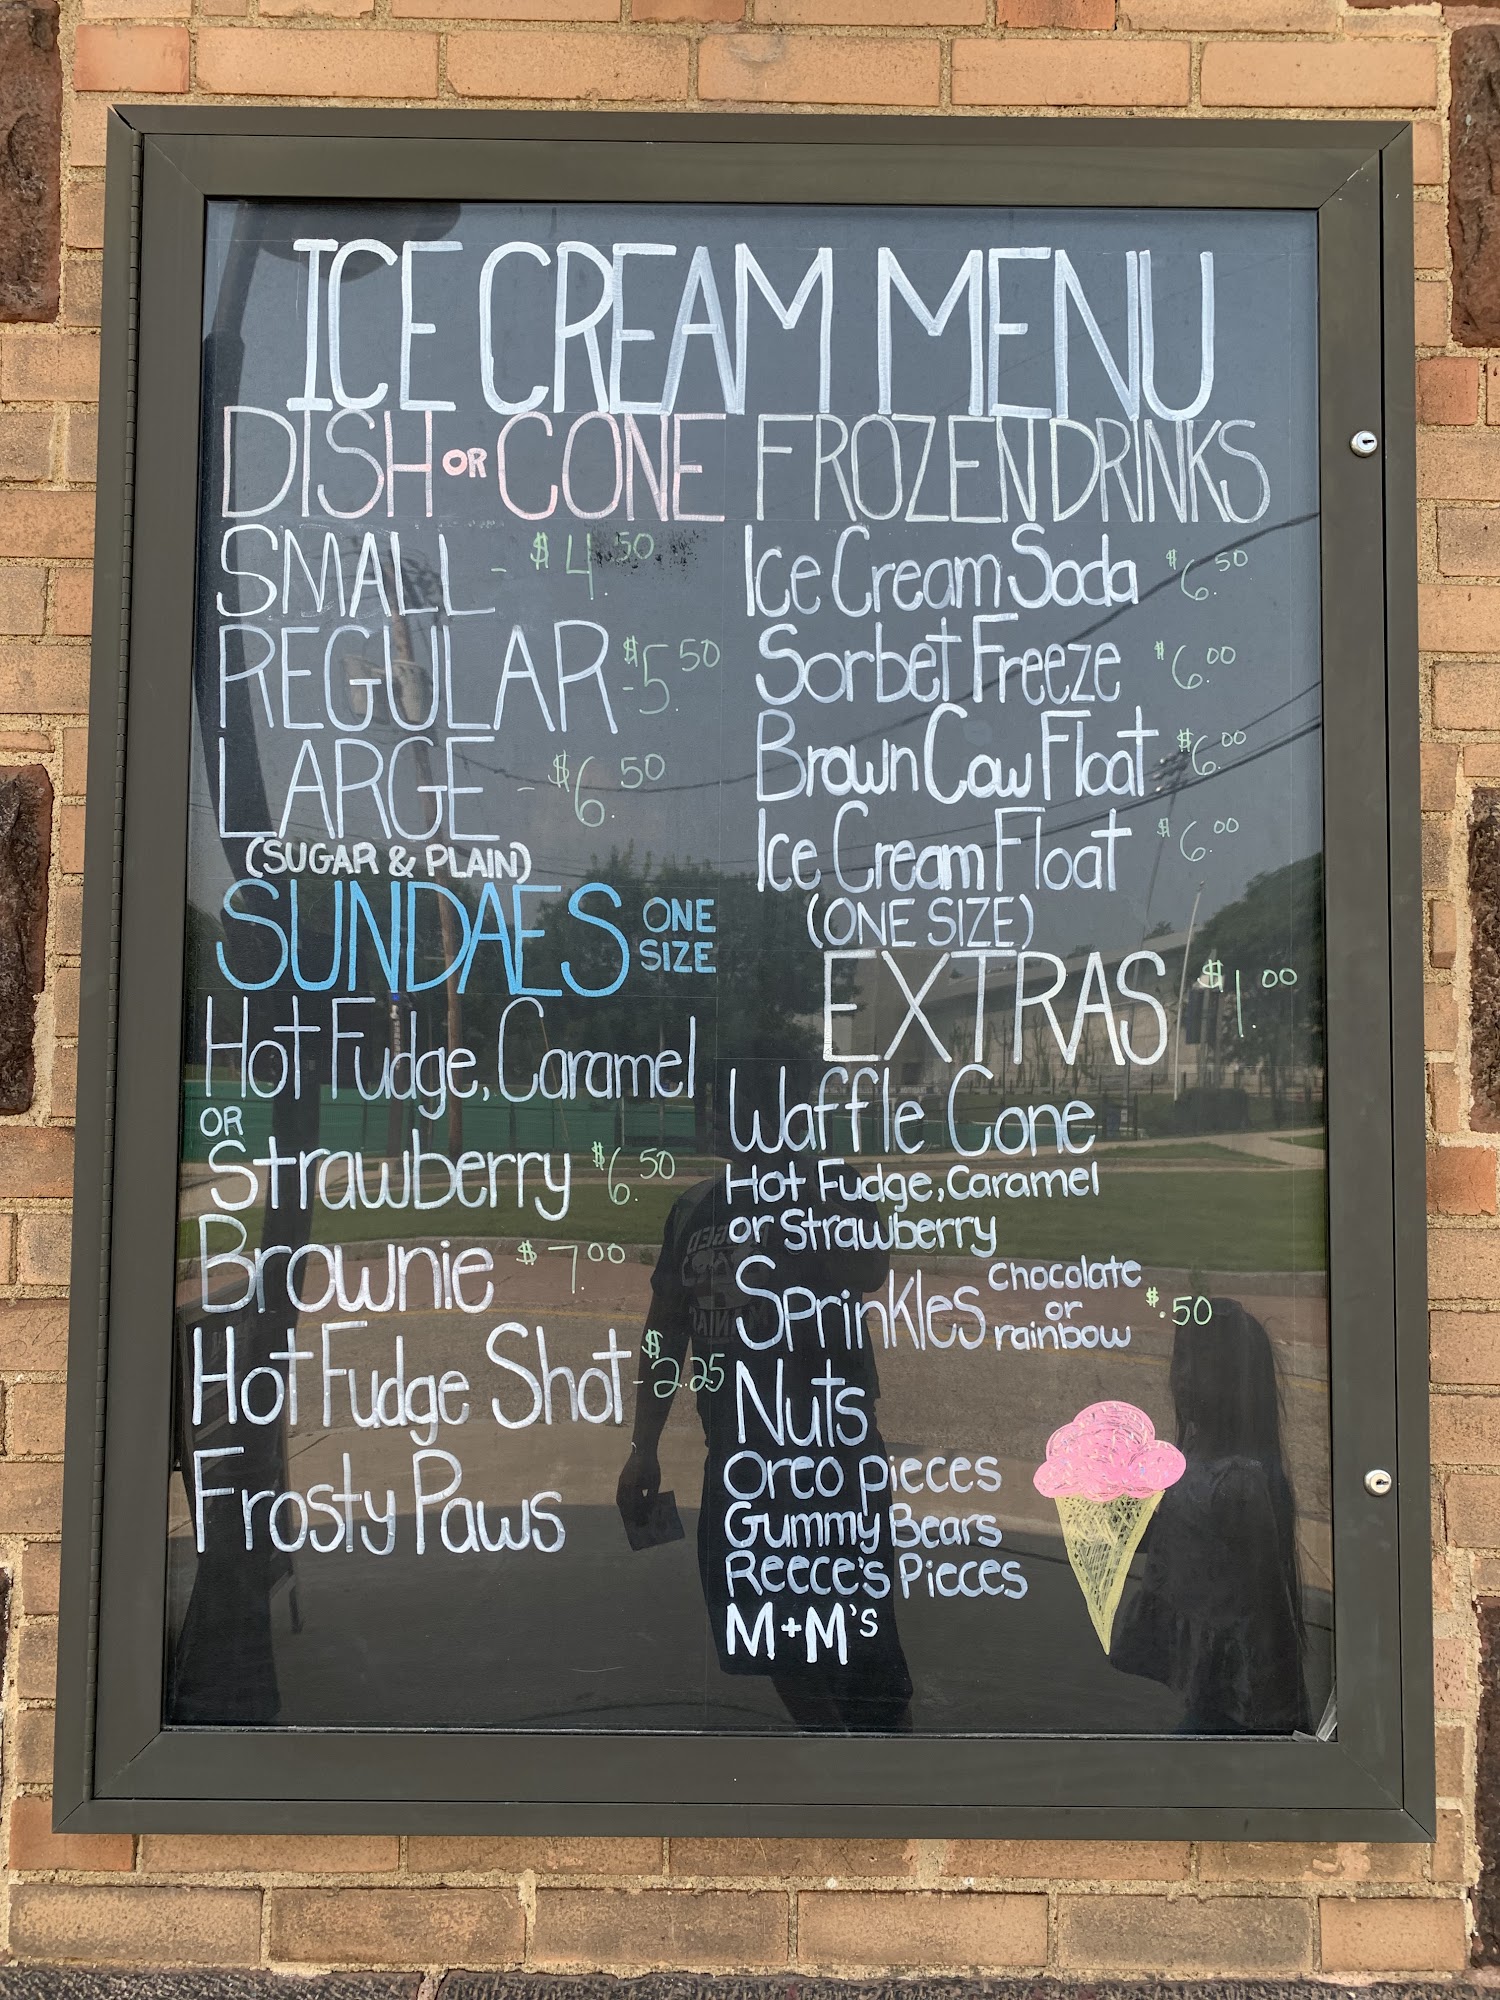 ICE CREAM MENU
DISH OR CONE
SMALL - $4.50
REGULAR - $5.50
LARGE - $6.50
(SUGAR & PLAIN)
SUNDAES ONE SIZE
Hot Fudge, Caramel
OR
Strawberry $6.50
Brownie $7.00
Hot Fudge Shot - $2.25
Frosty Paws
FROZEN DRINKS
Ice Cream Soda $6.50
Sorbet Freeze $6.00
Brown Cow Float $6.00
Ice Cream Float $6.00
(ONE SIZE)
EXTRAS $1.00
Waffle Cone
Hot Fudge, Caramel
or Strawberry
Sprinkles chocolate or rainbow $.50
Nuts
Oreo pieces
Gummy Bears
Reece's Pieces
M+M's